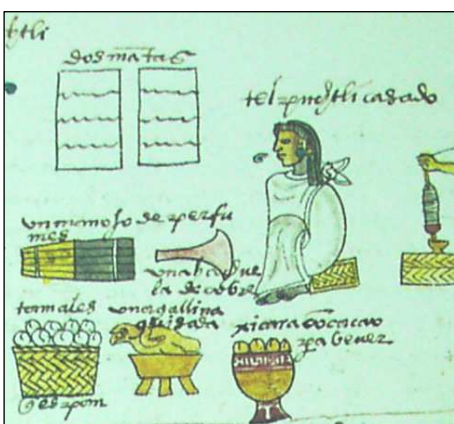 tli
dos mātas
telpuchtli casado
un manojo de perfu
mes
una hachue
la de cobre
tamales
una gallina
guisada
xicara cō cacao
pa bever